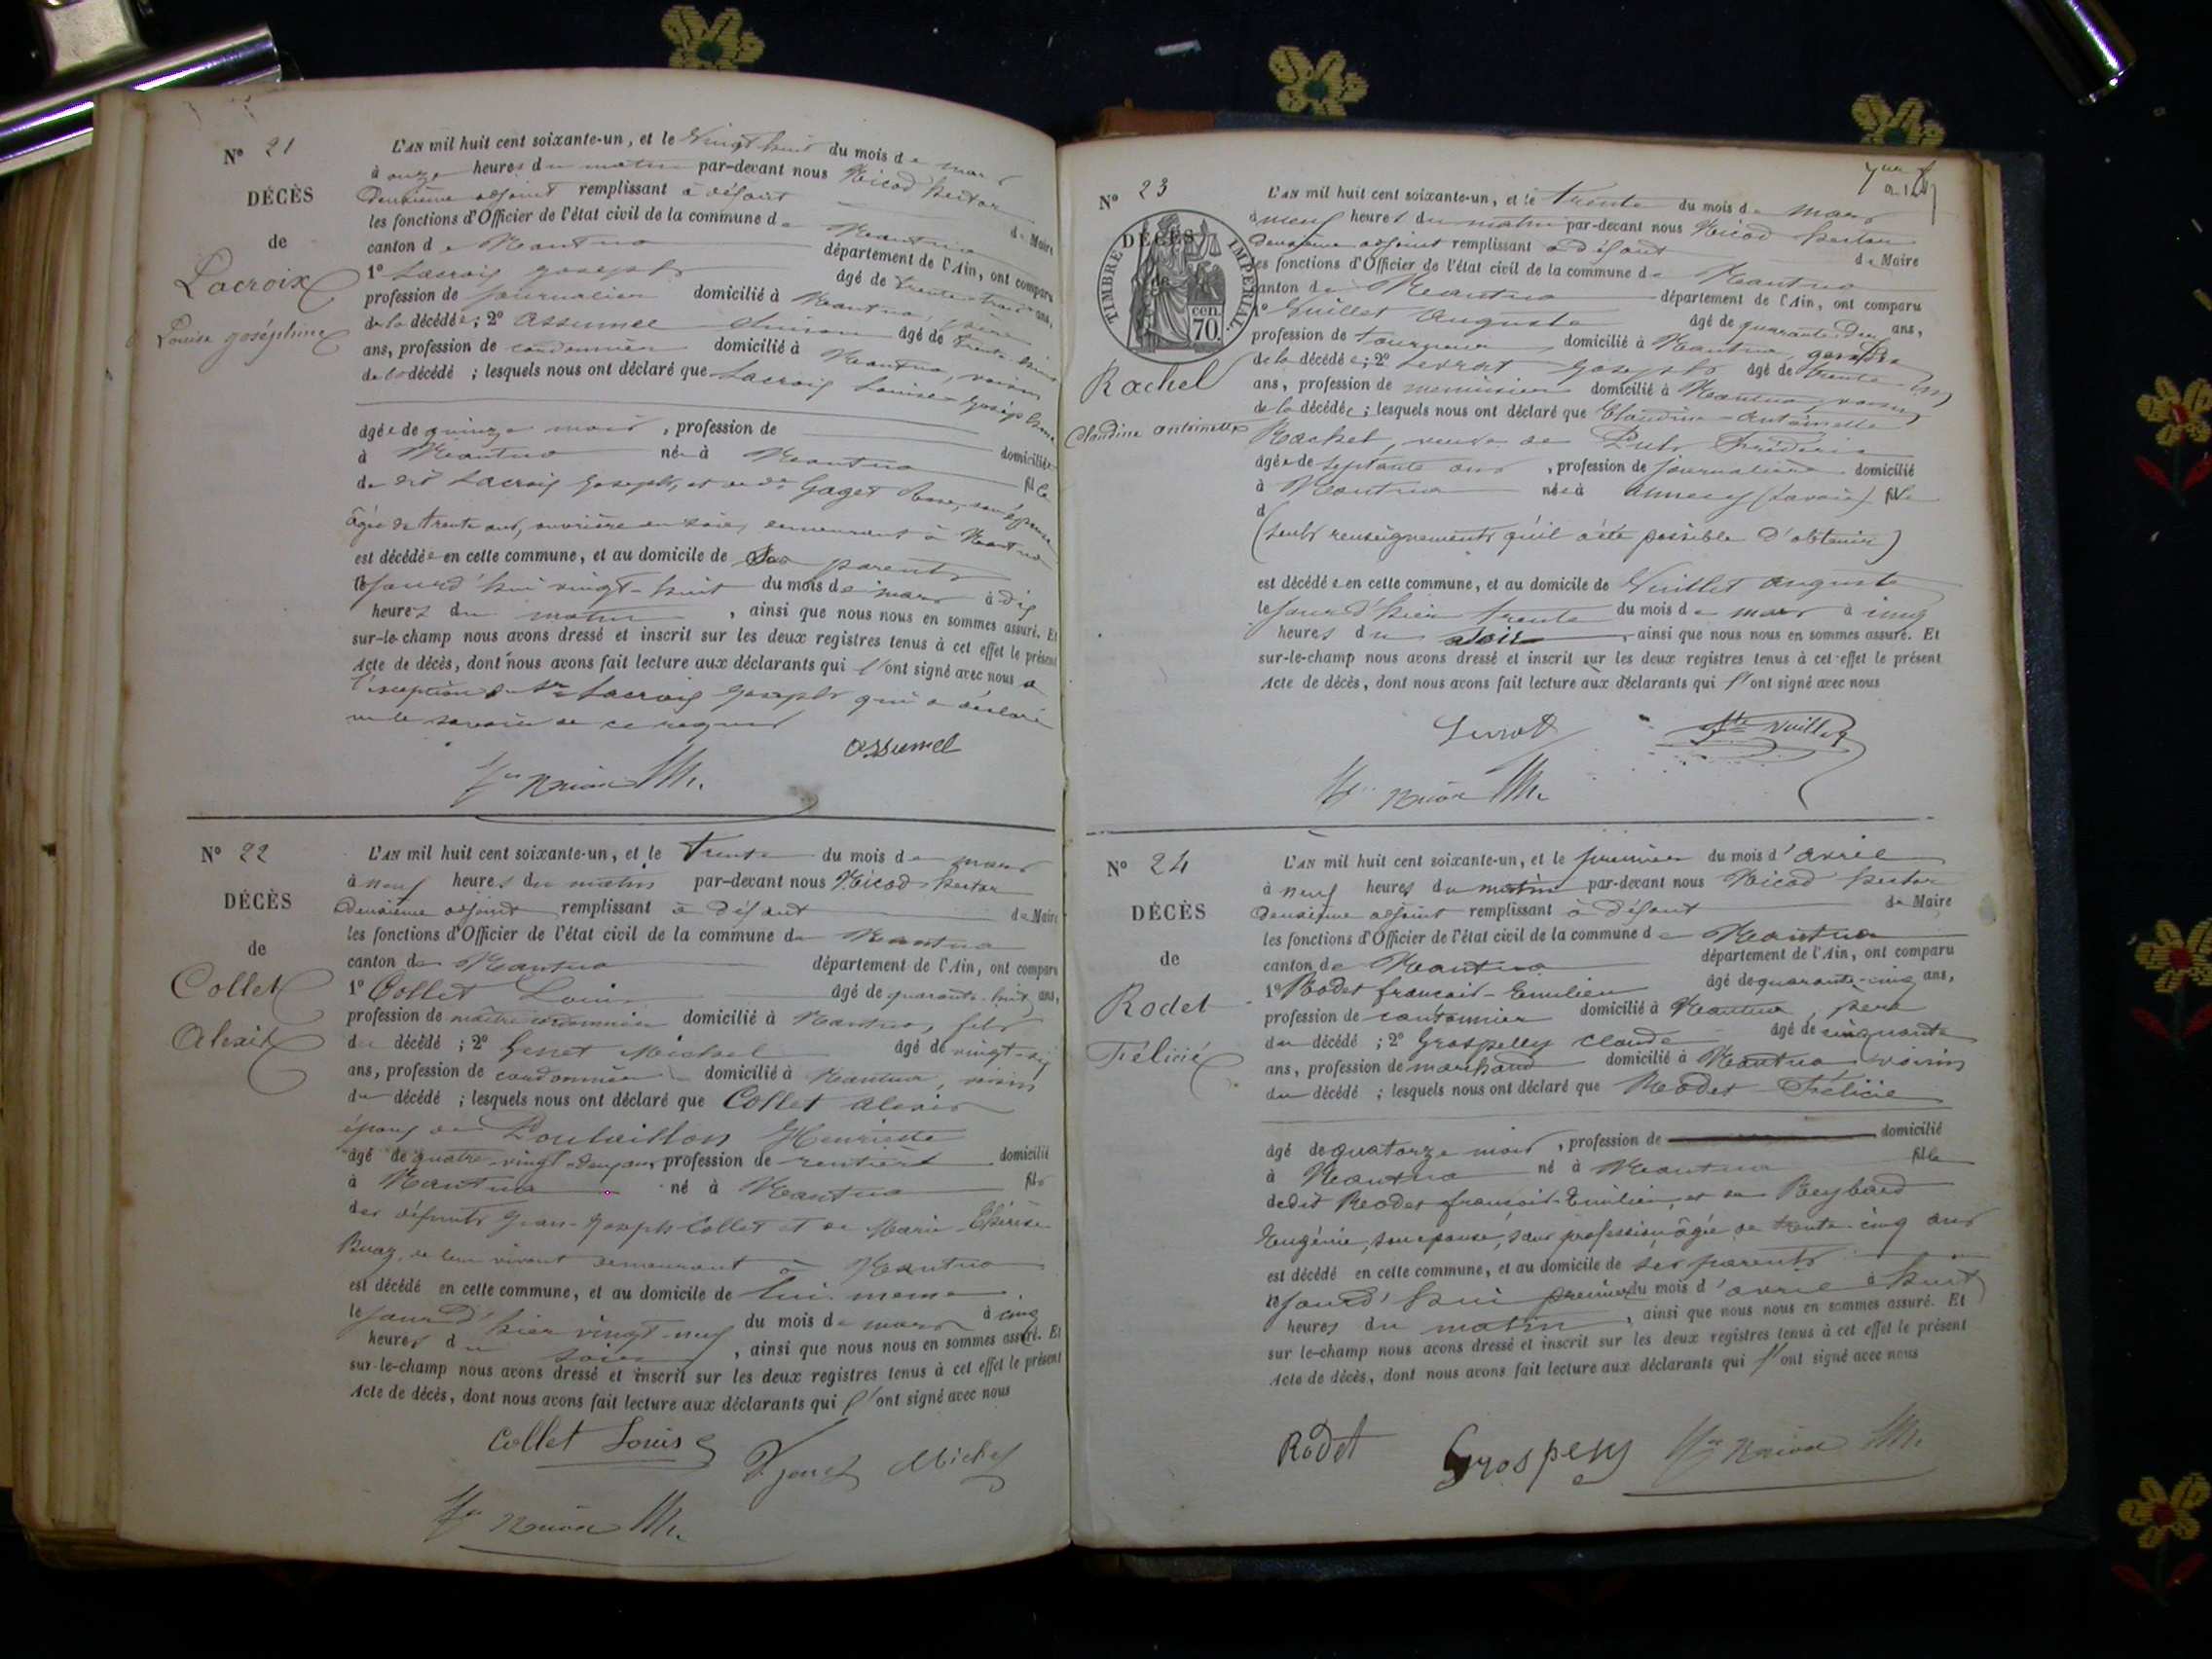 N° 21
DÉCÈS
de
Lacroix
Louise Joséphine
L'AN mil huit cent soixante-un, et le Vingt huit du mois de mars
à onze heures du matin par-devant nous Nicod Hector
deuxième adjoint remplissant à défaut du Maire
les fonctions d'Officier de l'état civil de la commune de Nantua
canton de Nantua département de l'Ain, ont comparu
1° Lacroix Joseph âgé de trente-trois ans,
profession de journalier domicilié à Nantua, père
de la décédée; 2° Assumel âgé de trente
ans, profession de cordonnier domicilié à Nantua, voisin
de la décédé ; lesquels nous ont déclaré que Lacroix Louise Joséphine
âgée de quinze mois, profession de domiciliée
à Nantua née à Nantua fille
de dit Lacroix Joseph, et de de Gaget son épouse
âgée de trente ans, ouvrière en soie, demeurant à Nantua
est décédée en cette commune, et au domicile de ses parents
le jourd'hui vingt-huit du mois de mars à dix
heures du matin, ainsi que nous nous en sommes assuré. Et
sur-le-champ nous avons dressé et inscrit sur les deux registres tenus à cet effet le présent
Acte de décès, dont nous avons fait lecture aux déclarants qui l'ont signé avec nous à
l'exception du Sr Lacroix Joseph qui a déclaré
ne le savoir de ce requis
assumel
N° 22
DÉCÈS
de
Collet
Alexis
L'AN mil huit cent soixante-un, et le trente du mois de mars
à neuf heures du matin par-devant nous Nicod Hector
deuxième adjoint remplissant à défaut du Maire
les fonctions d'Officier de l'état civil de la commune de Nantua
canton de Nantua département de l'Ain, ont comparu
1° Collet Louis âgé de quarante-huit ans,
profession de maître cordonnier domicilié à Nantua, fils
du décédé ; 2° Michel âgé de vingt-six
ans, profession de cordonnier domicilié à Nantua, voisin
du décédé ; lesquels nous ont déclaré que Collet Alexis
époux de Henriette
âgé de quatre-vingt-deux ans, profession de rentier domicilié
à Nantua né à Nantua fils
des défunts Jean-Joseph Collet et de Marie Thérèse
de leur vivant demeurant à Nantua
est décédé en cette commune, et au domicile de lui-même
le jourd'hier vingt-neuf du mois de mars à cinq
heures du soir, ainsi que nous nous en sommes assuré. Et
sur-le-champ nous avons dressé et inscrit sur les deux registres tenus à cet effet le présent
Acte de décès, dont nous avons fait lecture aux déclarants qui l'ont signé avec nous
Collet Louis
Michel
N° 23
DÉCÈS
de
TIMBRE IMPÉRIAL.
cen.
70.
Rachel
Claudine Antoinette
L'AN mil huit cent soixante-un, et le trente du mois de mars
à neuf heures du matin par-devant nous Nicod Hector
deuxième adjoint remplissant à défaut du Maire
les fonctions d'Officier de l'état civil de la commune de Nantua
canton de Nantua département de l'Ain, ont comparu
1° Vuillet Auguste âgé de quarante-deux ans,
profession de tourneur, domicilié à Nantua, gendre
de la décédée; 2° Levrat Joseph âgé de trente-
ans, profession de menuisier domicilié à Nantua, voisin
de la décédée; lesquels nous ont déclaré que Claudine-Antoinette
Rachel, veuve de Frédéric
âgée de septante ans, profession de journalière domicilié
à Nantua née à Annecy (Savoie) fille
d
(seuls renseignements qu'il a été possible d'obtenir)
est décédée en cette commune, et au domicile de Vuillet Auguste
le jourd'hier trente du mois de mars à cinq
heures du soir, ainsi que nous nous en sommes assuré. Et
sur-le-champ nous avons dressé et inscrit sur les deux registres tenus à cet effet le présent
Acte de décès, dont nous avons fait lecture aux déclarants qui l'ont signé avec nous
Levrat
Vuillet
N° 24
DÉCÈS
de
Rodet
Félicié
L'AN mil huit cent soixante-un, et le premier du mois d'avril
à neuf heures du matin par-devant nous Nicod Hector
deuxième adjoint remplissant à défaut du Maire
les fonctions d'Officier de l'état civil de la commune de Nantua
canton de Nantua département de l'Ain, ont comparu
1° Rodet françois-Emilien âgé de quarante-cinq ans,
profession de cantonnier domicilié à Nantua, père
du décédé ; 2° Grospelly Claude âgé de cinquante
ans, profession de marchand domicilié à Nantua, voisin
du décédé ; lesquels nous ont déclaré que Rodet Félicié
âgé de quatorze mois, profession de domicilié
à Nantua né à Nantua fils
de dit Rodet françois-Emilien, et de Reybard
Eugénie, son épouse, sans profession, âgée de trente-cinq ans
est décédé en cette commune, et au domicile de ses parents
le jourd'hui premier du mois d'avril à huit
heures du matin, ainsi que nous nous en sommes assuré. Et
sur le-champ nous avons dressé et inscrit sur les deux registres tenus à cet effet le présent
Acte de décès, dont nous avons fait lecture aux déclarants qui l'ont signé avec nous
Rodet